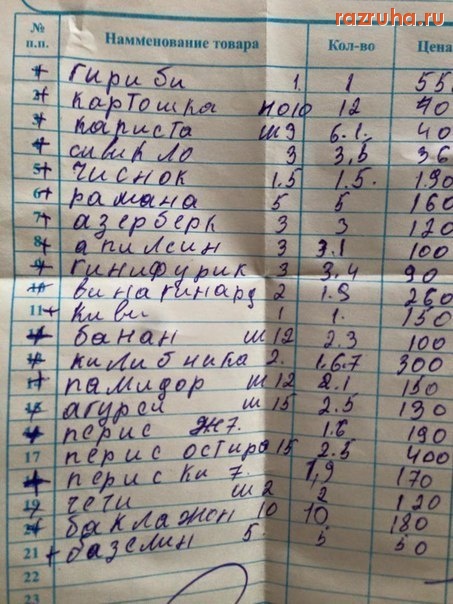 razruha.ru
№ п.п. Намменование товара Кол-во Цена
1 гириби 1. 1 55
2 картошка 1010 12 70
3 кариста ш9 6.1. 40
4 сивикло 3 3,5 36
5 чиснок 1.5 1.5. 190
6 рамана 5 5 160
7 азерберк 3 3 120
8 апилсин 3 3.1 100
9 гинифурик 3 3,4 90
10 винагинард 2 1.9 260
11 киви 1 1. 150
12 банан ш12 2.3 100
13 килибника 2. 1.6.7 300
14 памидор ш12 2.1 150
15 агурси ш15 2.5 130
16 перис ж7. 1.6 190
17 перис остиро 15 2.5 400
18 периски 7. 1,9 170
19 чети ш2 2 120
20 баклажен 10 10 180
21 базелин 5. 5 50
22
23